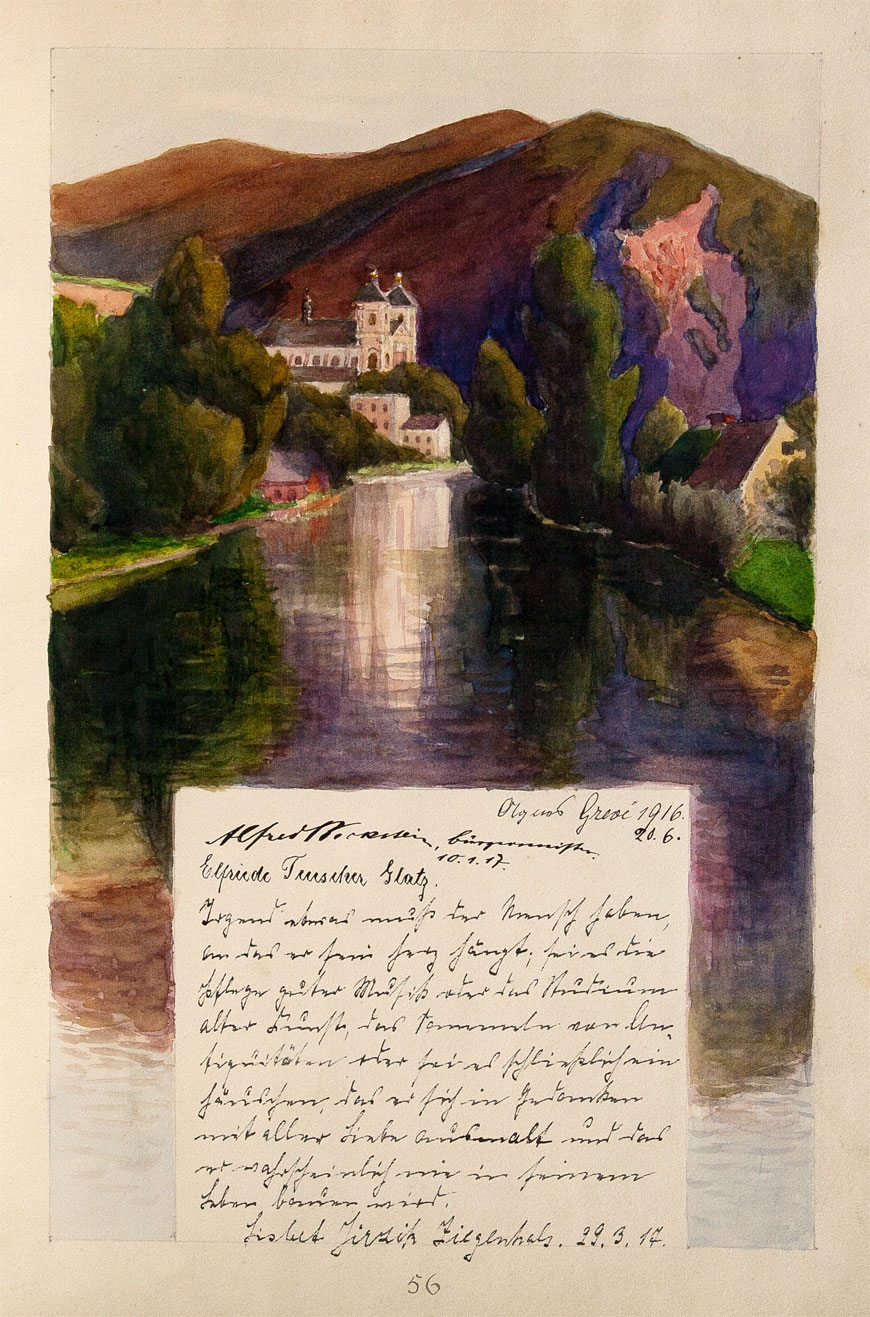 Agnes Greve 1916.
20.6.
Alfred, Bürgermeister.
10.1.17.
Elfriede Teuscher Glatz.
Irgend etwas muß der Mensch haben,
an das er sein Herz hängt; sei es die
Pflege guter Musik oder das Studium
alter Kunst, das Sammeln von An-
tiquitäten oder sei es schließlich ein
Häuschen, das er sich in Gedanken
mit aller Liebe ausmalt und das
er wahrscheinlich nie in seinem
Leben bauen wird.
Lisbet Jirzik Ziegenhals. 29.3.17.
56